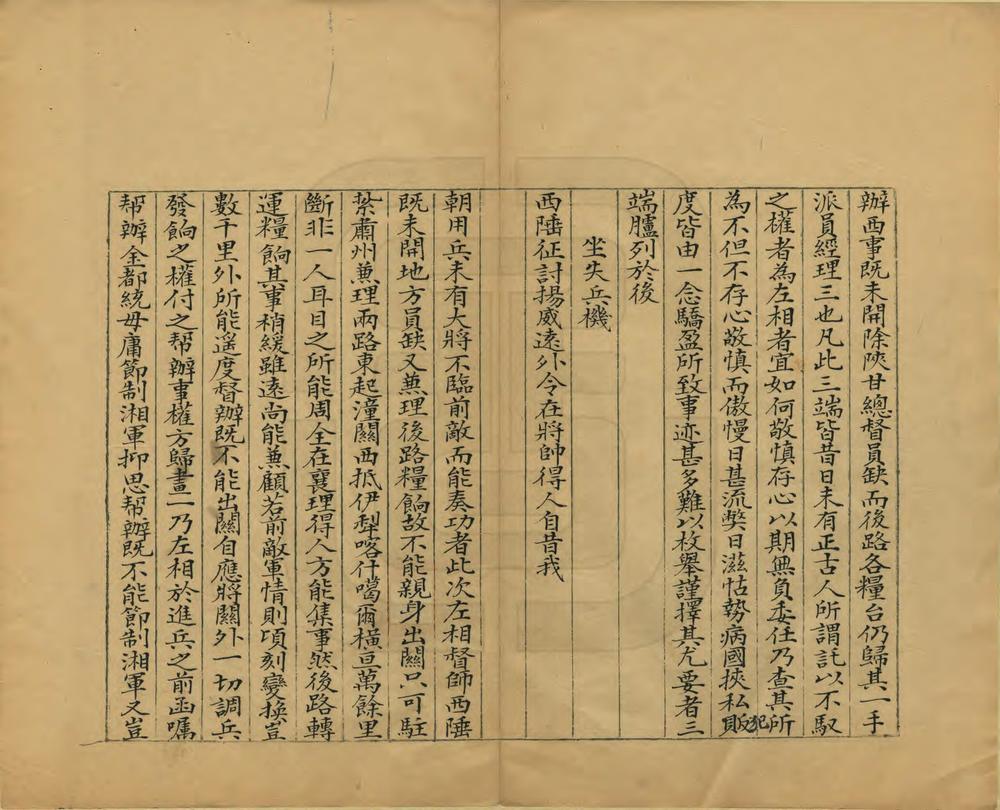 辦西事既未開除陝甘總督員缺而後路各糧台仍歸其一手
派員經理三也凡此三端皆昔日未有正古人所謂託以不馭
之權者為左相者宜如何敬慎存心以期無負委任乃查其所
為不但不存心敬慎而傲慢日甚流獘日滋怙勢病國挾私犯
度皆由一念驕盈所致事迹甚多難以枚舉謹擇其尤要者三
端臚列於後
坐失兵機
西陲征討揚威遠外令在將帥得人自昔我
朝用兵未有大將不臨前敵而能奏功者此次左相督師西陲
既未開地方員缺又兼理後路糧餉故不能親身出關只可駐
紮肅州兼理兩路東起潼關西抵伊犁喀什噶爾橫亘萬餘里
斷非一人耳目之所能周全在襄理得人方能集事然後路轉
運糧餉其事稍緩雖遠尚能兼顧若前敵軍情則頃刻變換豈
數千里外所能遥度督辦既不能出關自應將關外一切調兵
發餉之權付之帮辦事權方歸畫一乃左相於進兵之前函囑
帮辦金都統毋庸節制湘軍抑思帮辦既不能節制湘軍又豈